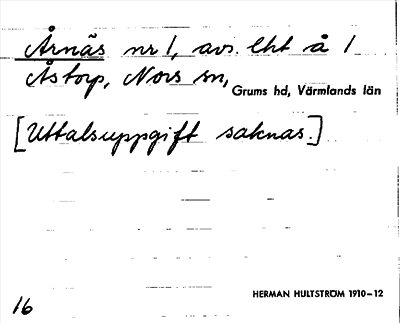 Årnäs nr 1, avs. lht å 1
Åstorp, Nors sn,
Grums hd, Värmlands län
[Uttalsuppgift saknas.]
HERMAN HULTSTRÖM 1910–12
16